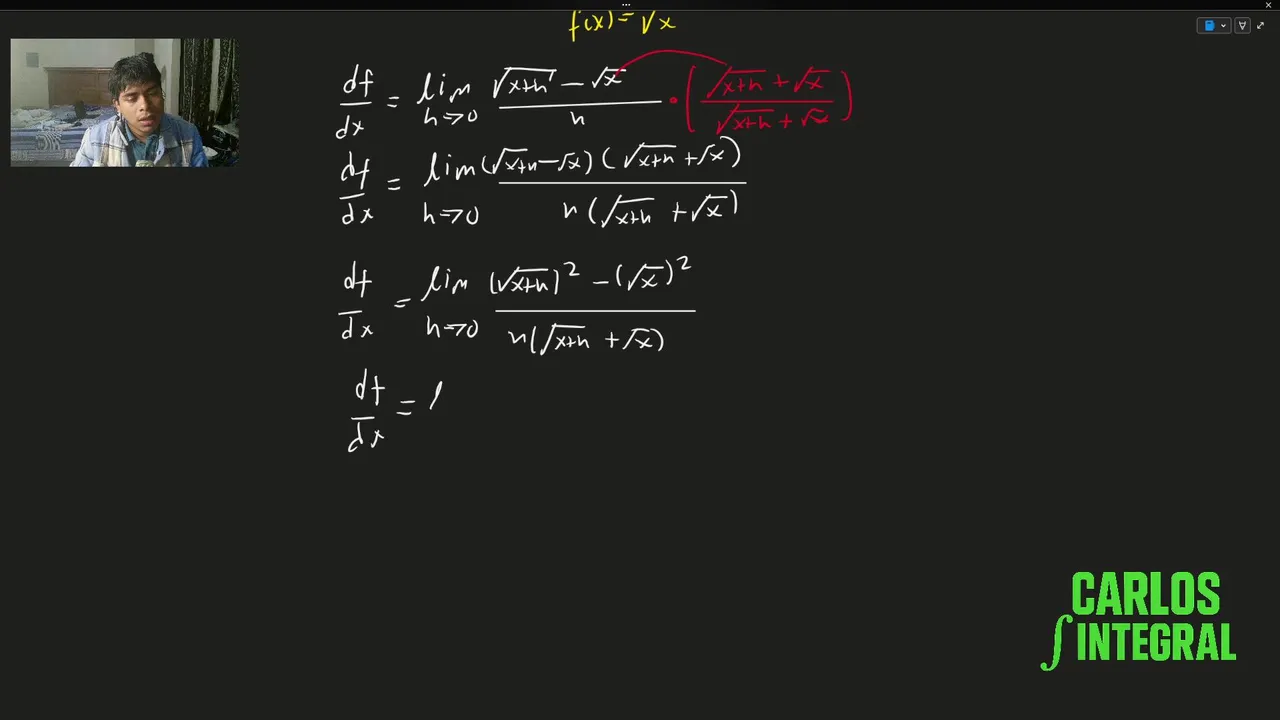 f(x) = √x
df/dx = lim h→0 (√(x+h) − √x)/h · ((√(x+h) + √x)/(√(x+h) + √x))
df/dx = lim h→0 (√(x+h) − √x)(√(x+h) + √x)/(h(√(x+h) + √x))
df/dx = lim h→0 ((√(x+h))² − (√x)²)/(h(√(x+h) + √x))
df/dx = l
CARLOS
∫ INTEGRAL